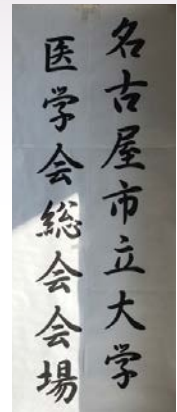 名古屋市立大学
医学会総会会場